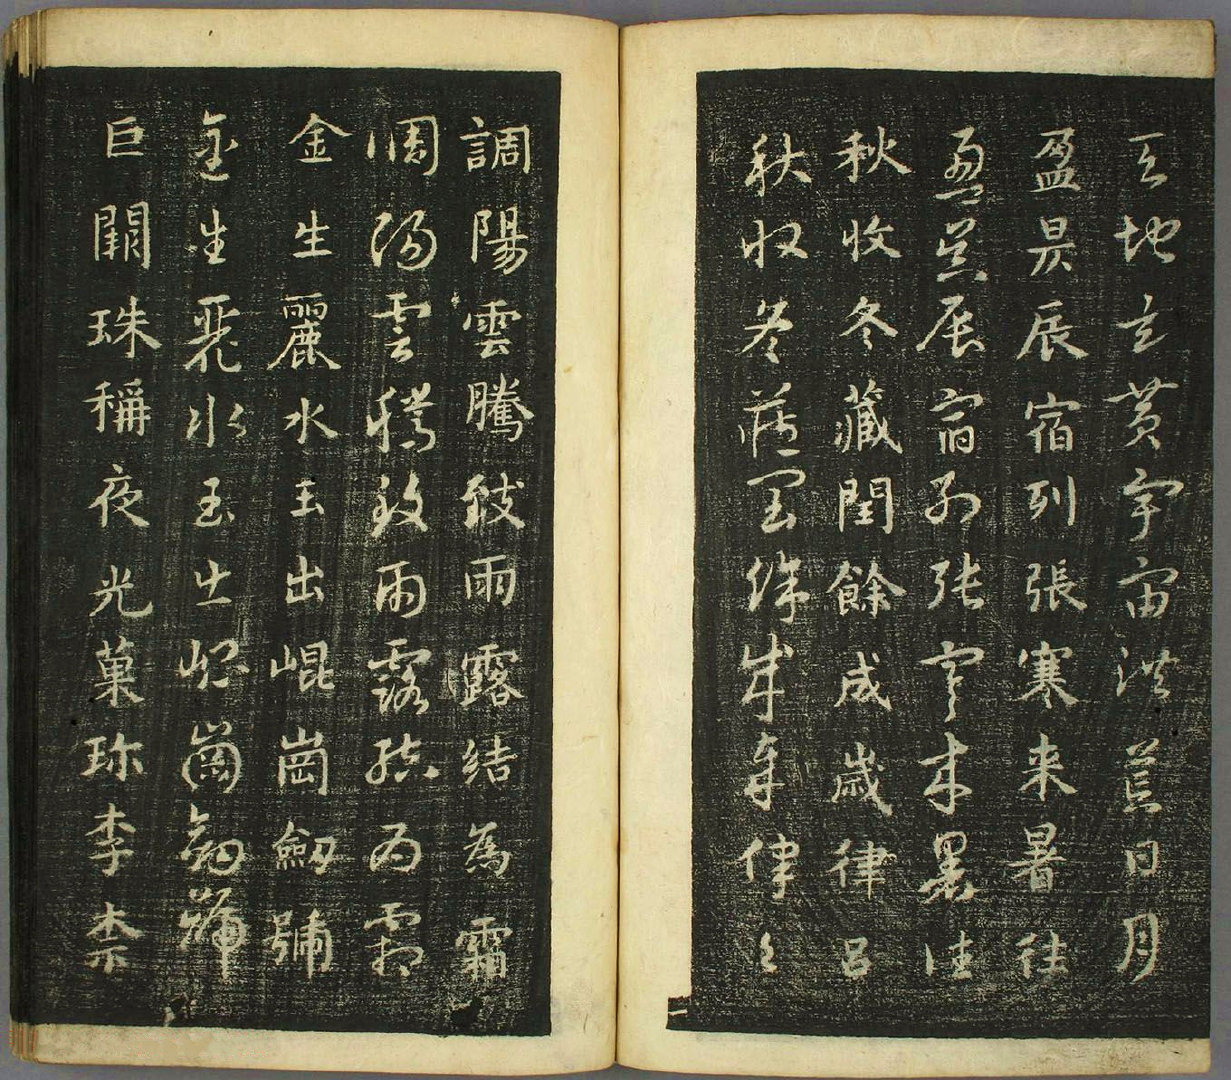 天地玄黄宇宙洪荒日月
盈昃辰宿列張寒来暑往
盈昃辰宿列張寒来暑往
秋收冬藏閏餘成歲律呂
秋收冬藏閏餘成歲律呂
調陽雲騰致雨露結為霜
調陽雲騰致雨露結為霜
金生麗水玉出崐崗劒號
金生麗水玉出崐崗劒號
巨闕珠稱夜光菓珎李柰